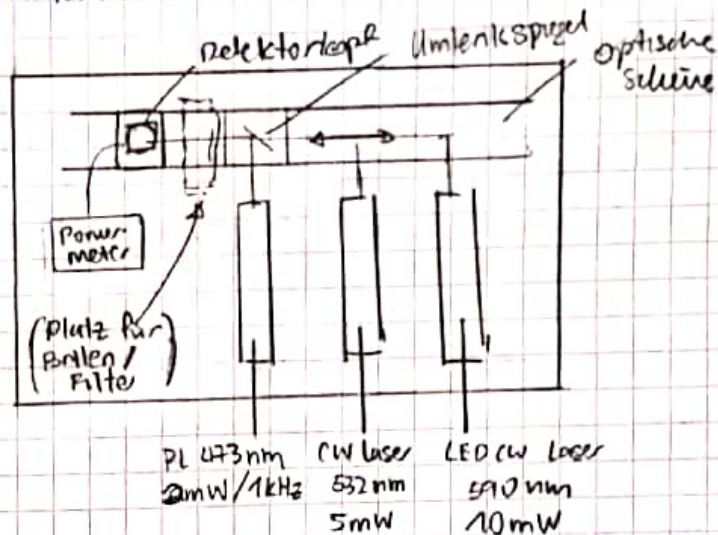 Detektorkopf
Umlenkspiegel
Optische
Schiene
Power-
meter
(Platz für
Brillen /
Filter)
PL 473nm
2mW/1kHz
CW Laser
532 nm
5mW
LED CW Laser
590 nm
10mW